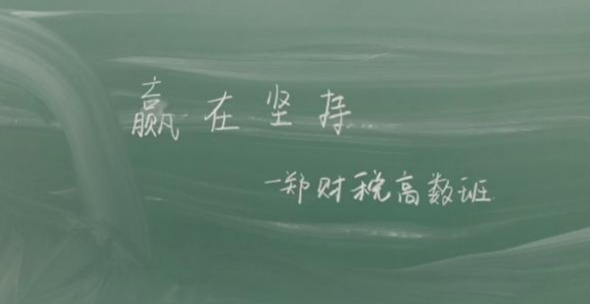 赢在坚持
—郑财税高数班